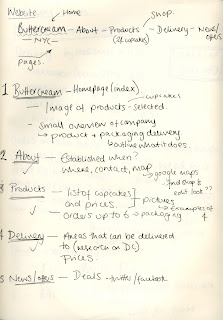 Website
Home
Shop.
Buttercream - About - Products - Delivery - News/
NYC
(2x cupcakes)
offers
pages.
1 Buttercream - Homepage (index)
cupcakes
- Image of products - selected.
- Small overview of company
→ product + packaging delivery
outline what it does.
2 About - Established when?
where, contact, map
→ google maps
find shop &
edit look??
3 Products - list of cupcakes
and prices.
pictures
- orders up to 6 → packaging
→ examples of
4 Delivery - Areas that can be delivered
to (research on DC)
Prices.
5 News/offers - Deals - twitter/facebook